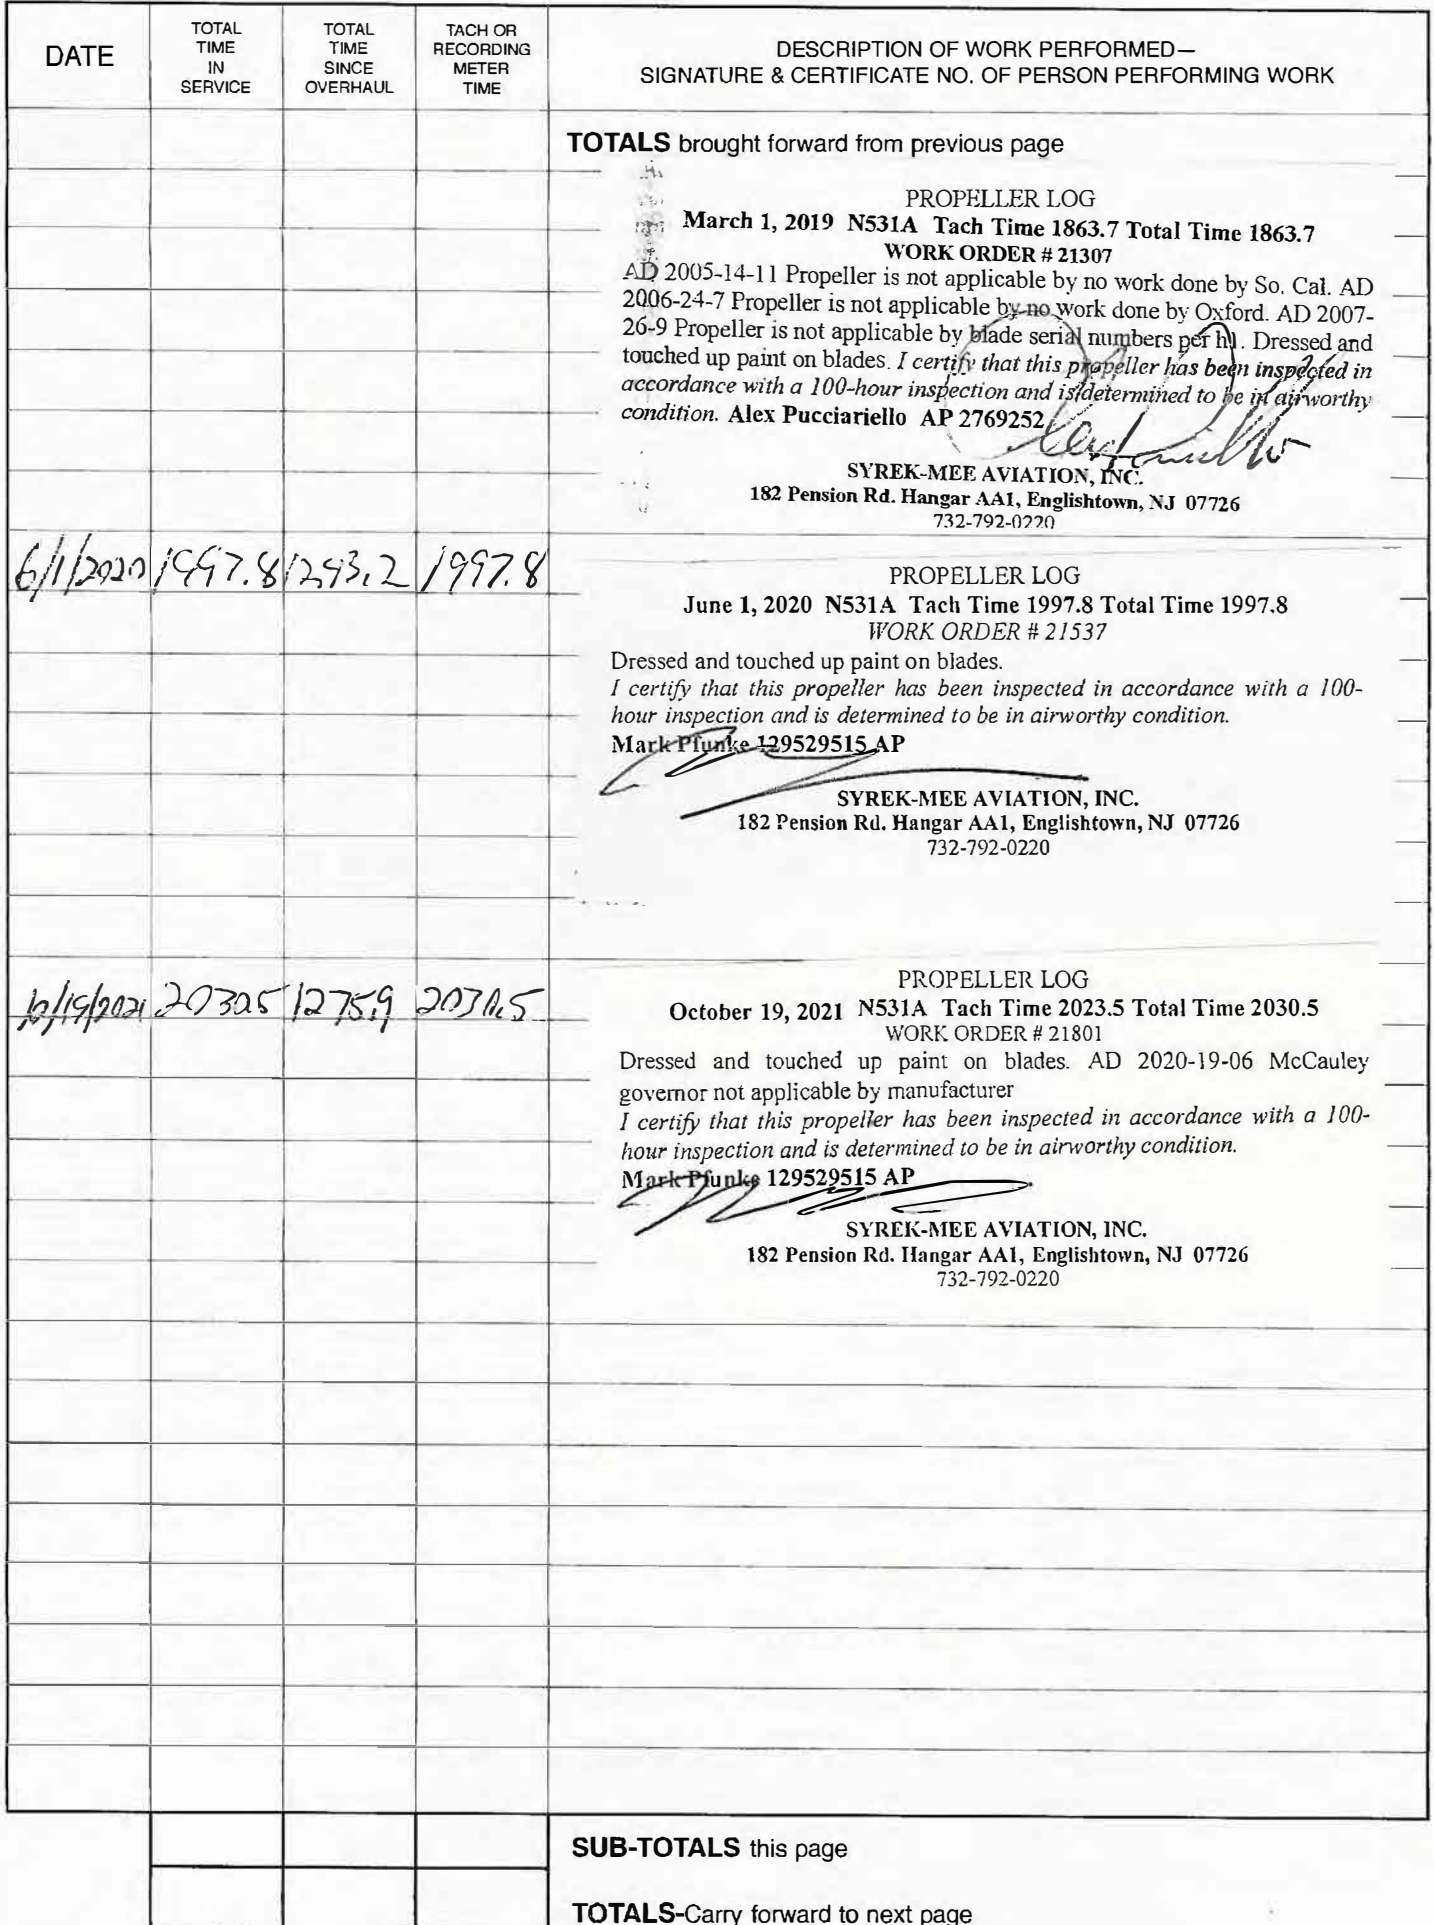 DATE
TOTAL TIME IN SERVICE
TOTAL TIME SINCE OVERHAUL
TACH OR RECORDING METER TIME
DESCRIPTION OF WORK PERFORMED—
SIGNATURE & CERTIFICATE NO. OF PERSON PERFORMING WORK
TOTALS brought forward from previous page
PROPELLER LOG
March 1, 2019 N531A Tach Time 1863.7 Total Time 1863.7
WORK ORDER # 21307
AD 2005-14-11 Propeller is not applicable by no work done by So. Cal. AD
2006-24-7 Propeller is not applicable by no work done by Oxford. AD 2007-
26-9 Propeller is not applicable by blade serial numbers per . Dressed and
touched up paint on blades. I certify that this propeller has been inspected in
accordance with a 100-hour inspection and is determined to be in airworthy
condition. Alex Pucciariello AP 2769252
SYREK-MEE AVIATION, INC.
182 Pension Rd. Hangar AA1, Englishtown, NJ 07726
732-792-0220
6/1/2020 1997.8 1243.2 1997.8
PROPELLER LOG
June 1, 2020 N531A Tach Time 1997.8 Total Time 1997.8
WORK ORDER # 21537
Dressed and touched up paint on blades.
I certify that this propeller has been inspected in accordance with a 100-
hour inspection and is determined to be in airworthy condition.
Mark Pfunke 129529515 AP
SYREK-MEE AVIATION, INC.
182 Pension Rd. Hangar AA1, Englishtown, NJ 07726
732-792-0220
10/19/2021 2030.5 1275.9 2030.5
PROPELLER LOG
October 19, 2021 N531A Tach Time 2023.5 Total Time 2030.5
WORK ORDER # 21801
Dressed and touched up paint on blades. AD 2020-19-06 McCauley
governor not applicable by manufacturer
I certify that this propeller has been inspected in accordance with a 100-
hour inspection and is determined to be in airworthy condition.
Mark Pfunke 129529515 AP
SYREK-MEE AVIATION, INC.
182 Pension Rd. Hangar AA1, Englishtown, NJ 07726
732-792-0220
SUB-TOTALS this page
TOTALS-Carry forward to next page